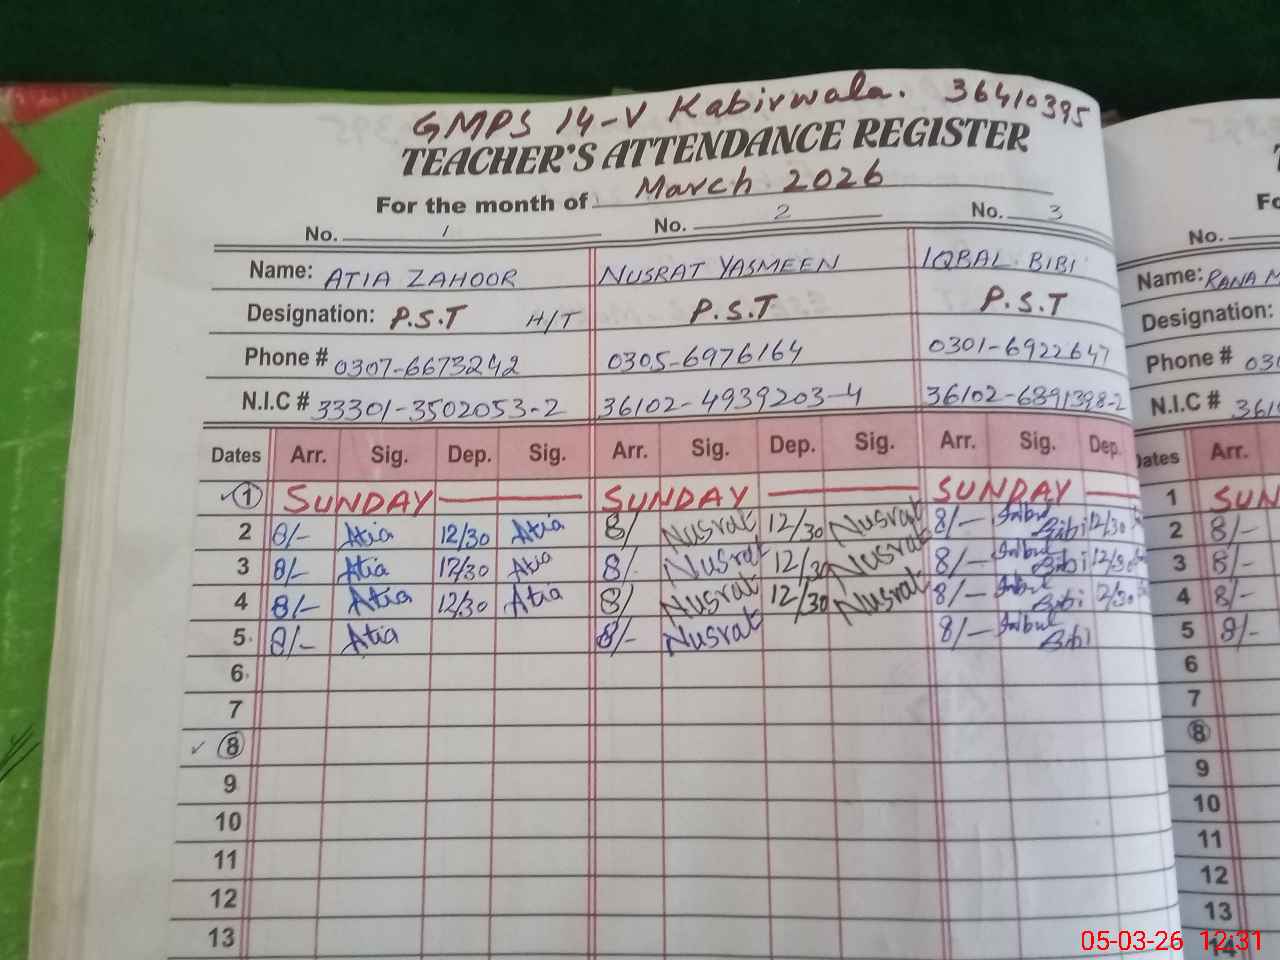 GMPS 14-V Kabirwala. 36410395
TEACHER'S ATTENDANCE REGISTER
For the month of March 2026
No. 1 No. 2 No. 3
Name: ATIA ZAHOOR NUSRAT YASMEEN IQBAL BIBI
Designation: P.S.T H/T P.S.T P.S.T
Phone # 0307-6673242 0305-6976164 0301-6922647
N.I.C # 33301-3502053-2 36102-4939203-4 36102-6891398-2
Dates Arr. Sig. Dep. Sig. Arr. Sig. Dep. Sig. Arr. Sig. Dep.
1 SUNDAY SUNDAY SUNDAY
2 8/- Atia 12/30 Atia 8/ Nusrat 12/30 Nusrat 8/- Iqbal Bibi 12/30
3 8/- Atia 12/30 Atia 8/. Nusrat 12/30 Nusrat 8/- Iqbal Bibi 12/30
4 8/- Atia 12/30 Atia 8/ Nusrat 12/30 Nusrat 8/- Iqbal Bibi 12/30
5 8/- Atia 8/- Nusrat 8/- Iqbal Bibi
6
7
8
9
10
11
12
13
No.
Name: RANA
Designation:
Phone #
N.I.C #
Dates Arr.
1
2 8/-
3 8/-
4 8/-
5 8/-
6
7
8
9
10
11
12
13
14
05-03-26 12:31